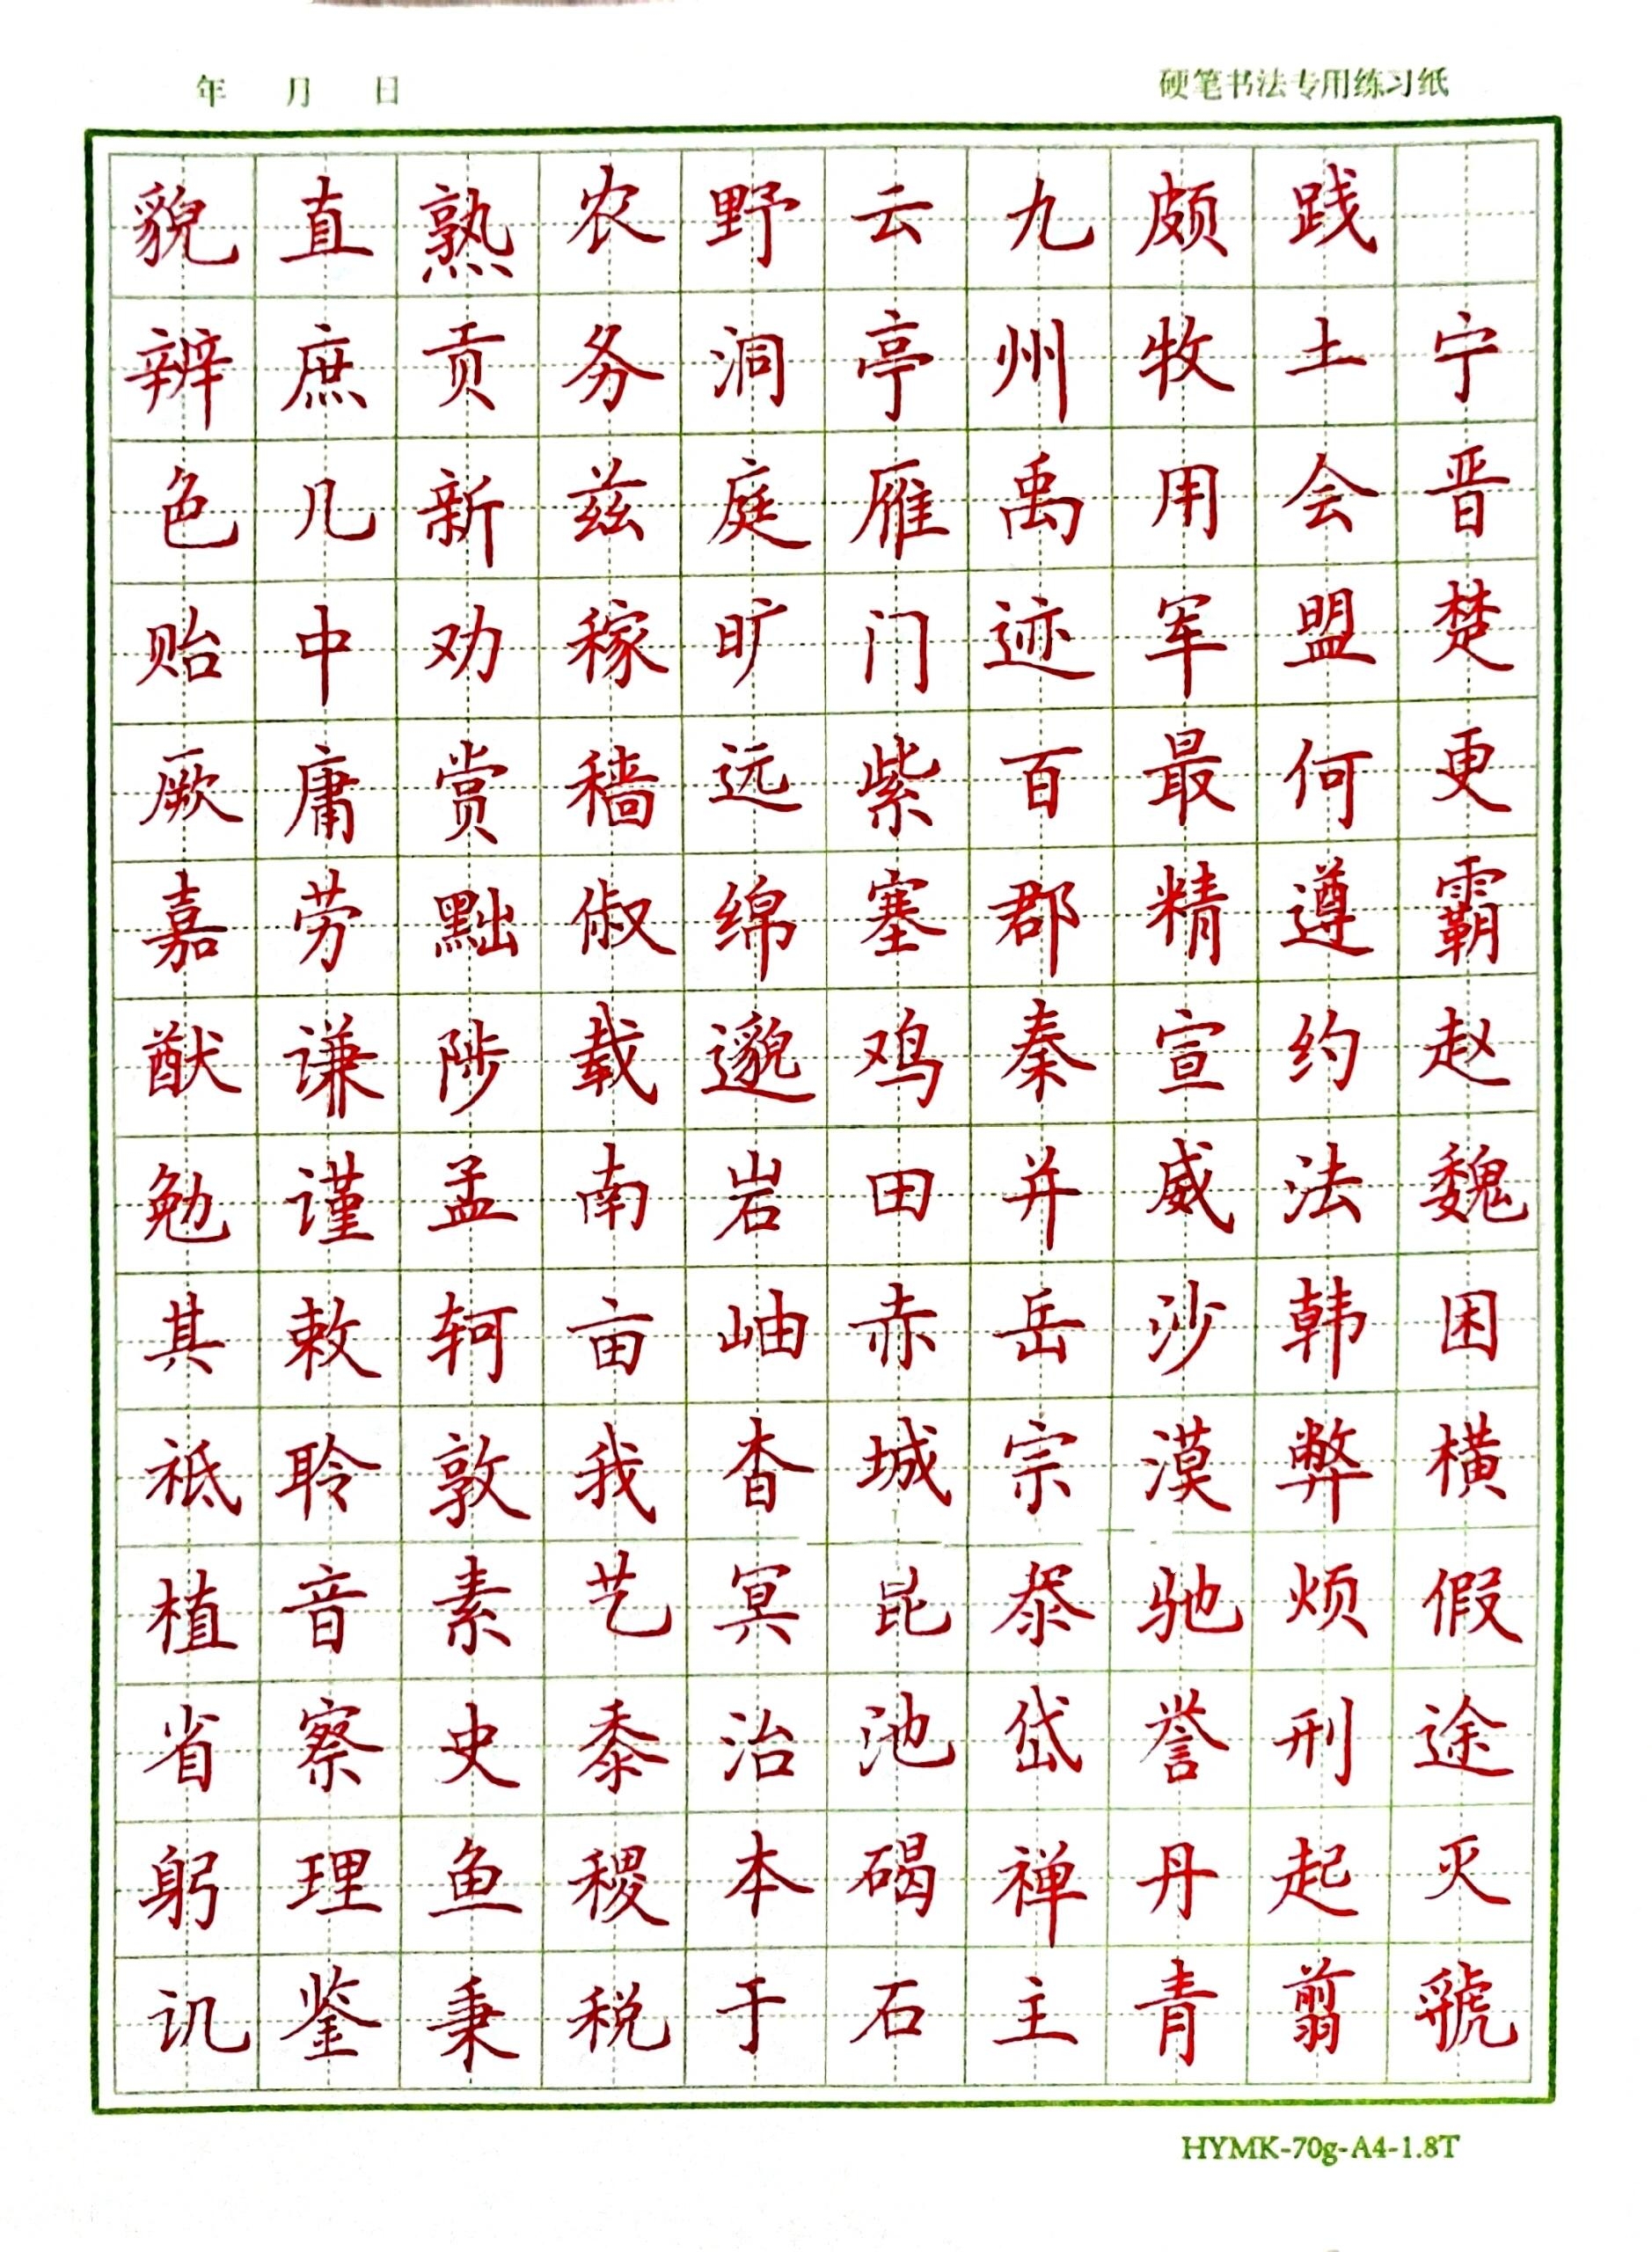 宁晋楚更霸赵魏困横假途灭虢
践土会盟何遵约法韩弊烦刑起翦
颇牧用军最精宣威沙漠驰誉丹青
九州禹迹百郡秦并岳宗泰岱禅主
云亭雁门紫塞鸡田赤城昆池碣石
野洞庭旷远绵邈岩岫杳冥治本于
农务兹稼穑俶载南亩我艺黍稷税
熟贡新劝赏黜陟孟轲敦素史鱼秉
直庶几中庸劳谦谨敕聆音察理鉴
貌辨色贻厥嘉猷勉其祗植省躬讥
年 月 日
硬笔书法专用练习纸
HYMK-70g-A4-1.8T